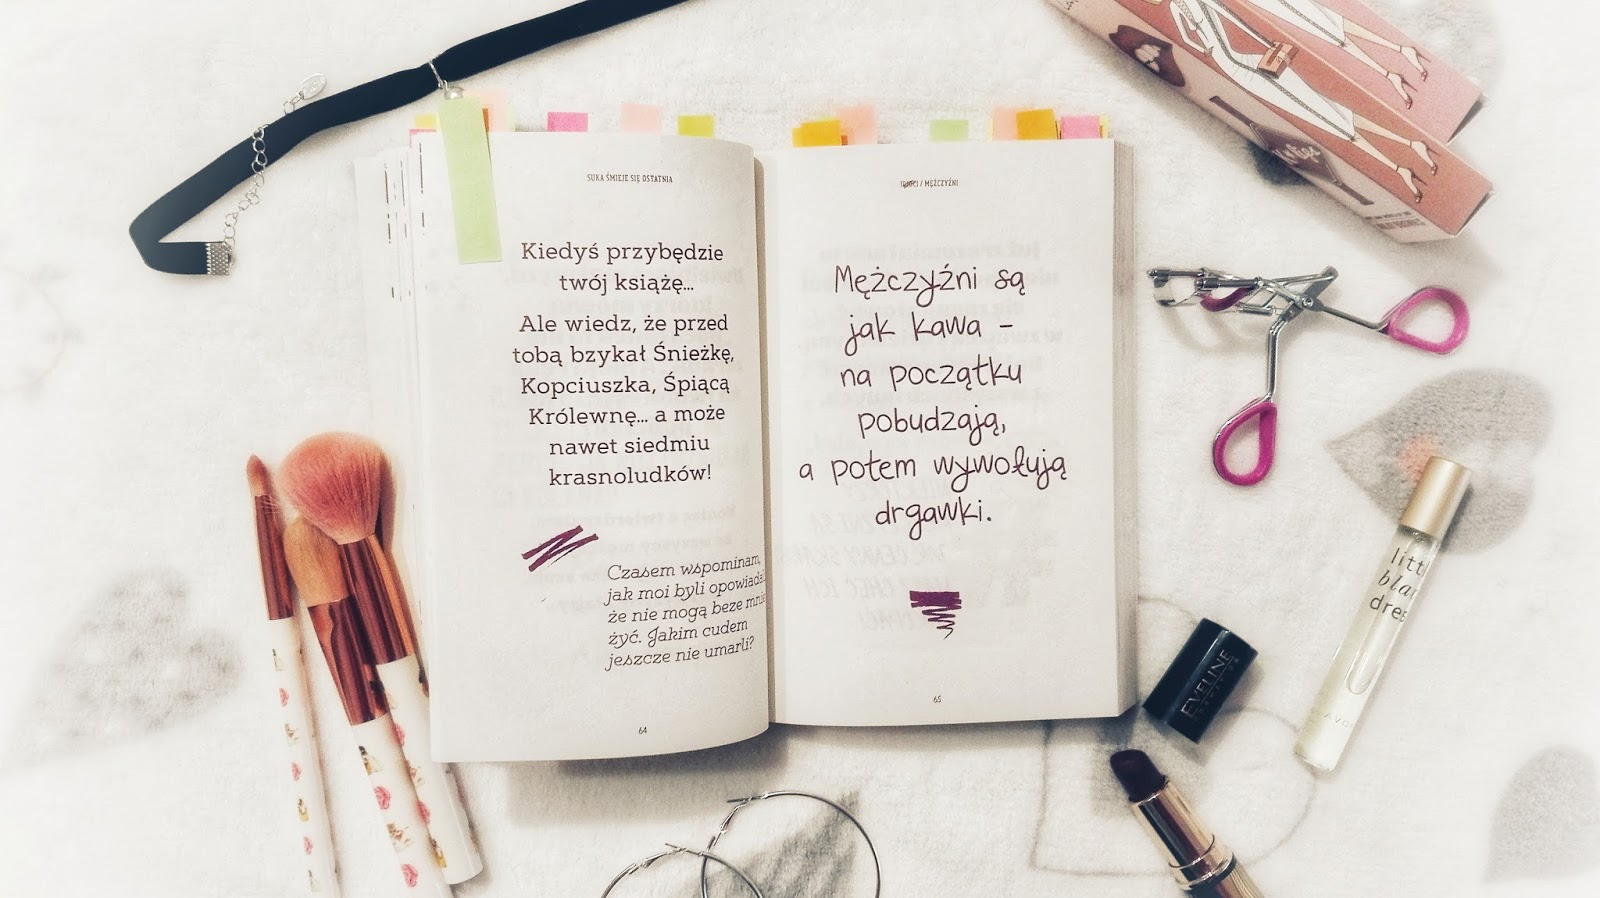 SUKA ŚMIEJE SIĘ OSTATNIA
Kiedyś przybędzie
twój książę...
Ale wiedz, że przed
tobą bzykał Śnieżkę,
Kopciuszka, Śpiącą
Królewnę... a może
nawet siedmiu
krasnoludków!
Czasem wspominam,
jak moi byli opowiadal
że nie mogą beze mnie
żyć. Jakim cudem
jeszcze nie umarli?
64
IDIOCI / MĘŻCZYŹNI
Mężczyźni są
jak kawa –
na początku
pobudzają,
a potem wywołują
drgawki.
65
EVELINE
COSMETICS
little
black
dress
AVON